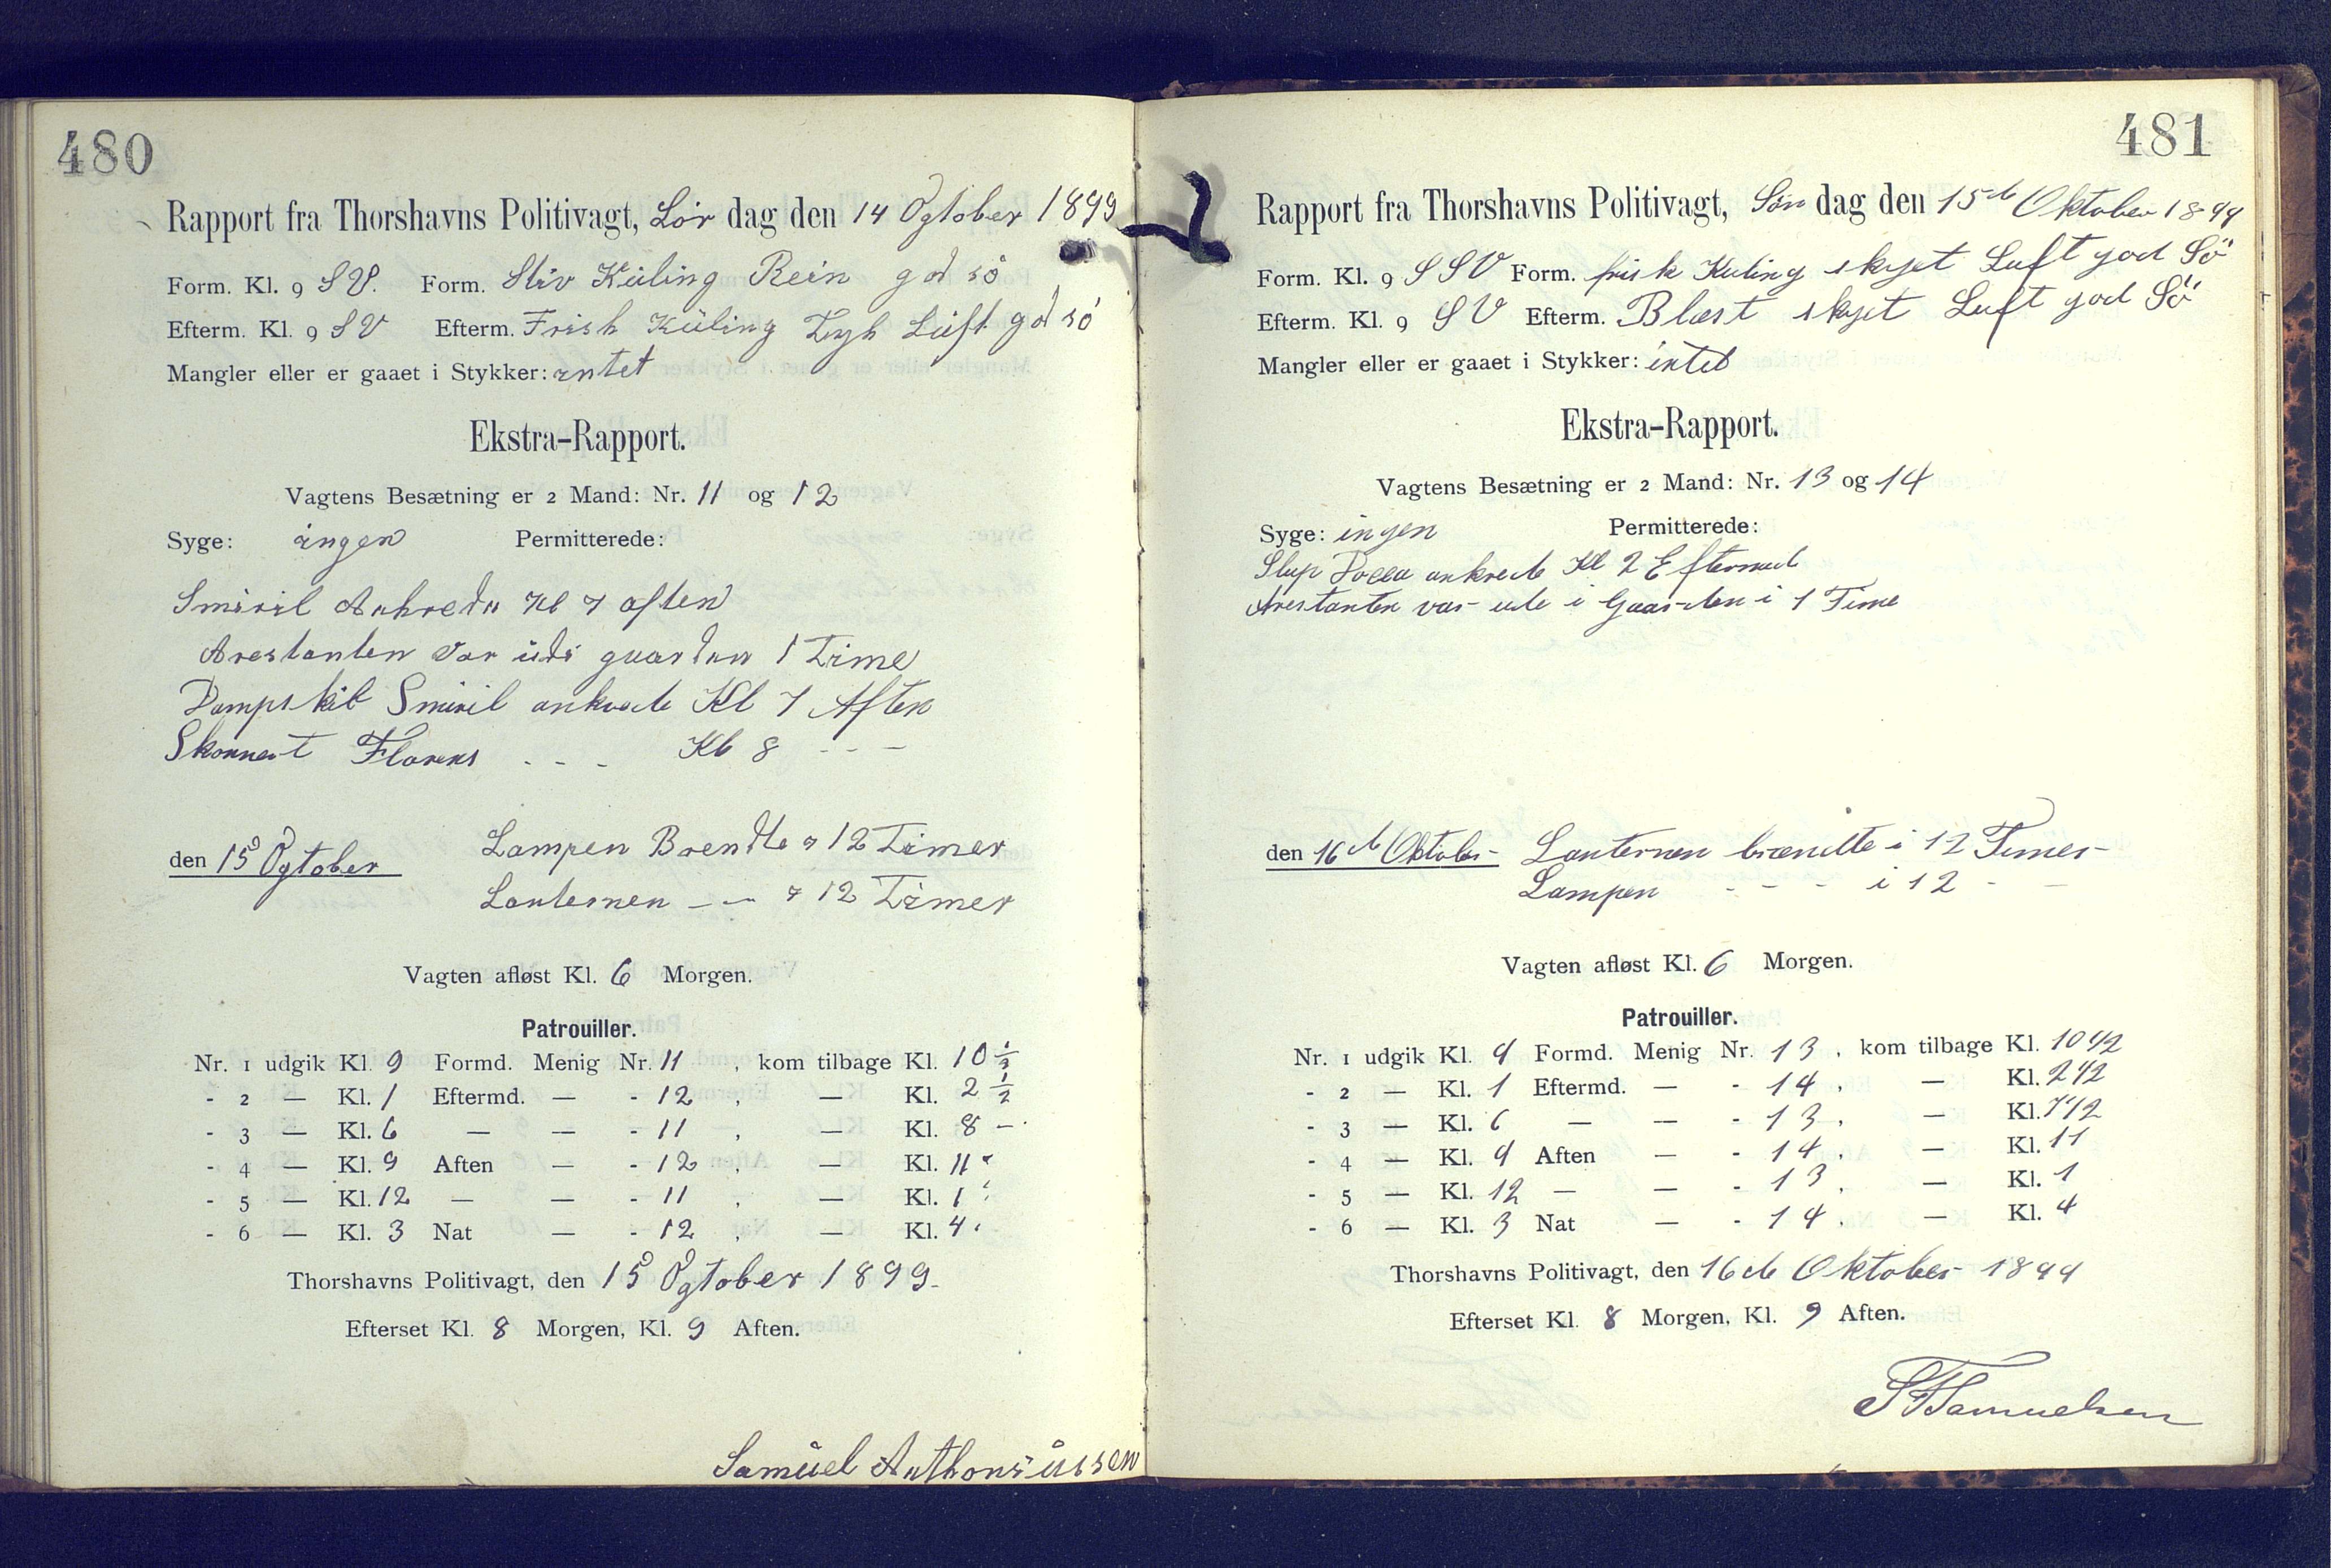 480
Rapport fra Thorshavns Politivagt, Lør dag den 14 Ogtober 1899
Form. Kl. 9 SV. Form. Stiv Kuling Rein god sö
Efterm. Kl. 9 SV Efterm. Frish Kuling Luft god sö
Mangler eller er gaaet i Stykker: intet
Ekstra-Rapport.
Vagtens Besætning er 2 Mand: Nr. 11 og 12
Syge: ingen Permitterede:
Smiril Ankrede Kl 7 aften
Arestanten var ude i gaarden 1 Time
Dampskib Smiril ankrede Kl 7 Aften
Skonnert Florens - - - Kl 8 - - -
den 15 Ogtober Lampen Brendte 12 Timer
Lanternen - - 12 Timer
Vagten afløst Kl. 6 Morgen.
Patrouiller.
Nr. 1 udgik Kl. 9 Formd. Menig Nr. 11 , kom tilbage Kl. 10 1/2
- 2 — Kl. 1 Eftermd. — - 12 , — Kl. 2 1/2
- 3 — Kl. 6 — — - 11 , — Kl. 8 -
- 4 — Kl. 9 Aften — - 12 , — Kl. 11
- 5 — Kl. 12 — — - 11 , — Kl. 1
- 6 — Kl. 3 Nat — - 12 , — Kl. 4
Thorshavns Politivagt, den 15 Ogtober 1899-
Efterset Kl. 8 Morgen, Kl. 9 Aften.
Samuel Anthoniussen
481
Rapport fra Thorshavns Politivagt, Søn dag den 15de Oktober 1899
Form. Kl. 9 SSV Form. frisk Kuling skyet Luft god Sö
Efterm. Kl. 9 SV Efterm. Blæst skyet Luft god Sö
Mangler eller er gaaet i Stykker: intet
Ekstra-Rapport.
Vagtens Besætning er 2 Mand: Nr. 13 og 14
Syge: ingen Permitterede:
Slup ankrede Kl 2 Eftermd
Arestanten var ude i Gaarden i 1 Time
den 16de Oktober Lanternen brændte i 12 Timer
Lampen - - - i 12 - -
Vagten afløst Kl. 6 Morgen.
Patrouiller.
Nr. 1 udgik Kl. 9 Formd. Menig Nr. 13 , kom tilbage Kl. 10 1/2
- 2 — Kl. 1 Eftermd. — - 14 , — Kl. 2 1/2
- 3 — Kl. 6 — — - 13 , — Kl. 7 1/2
- 4 — Kl. 9 Aften — - 14 , — Kl. 11
- 5 — Kl. 12 — — - 13 , — Kl. 1
- 6 — Kl. 3 Nat — - 14 , — Kl. 4
Thorshavns Politivagt, den 16de Oktober 1899
Efterset Kl. 8 Morgen, Kl. 9 Aften.
Samuelsen